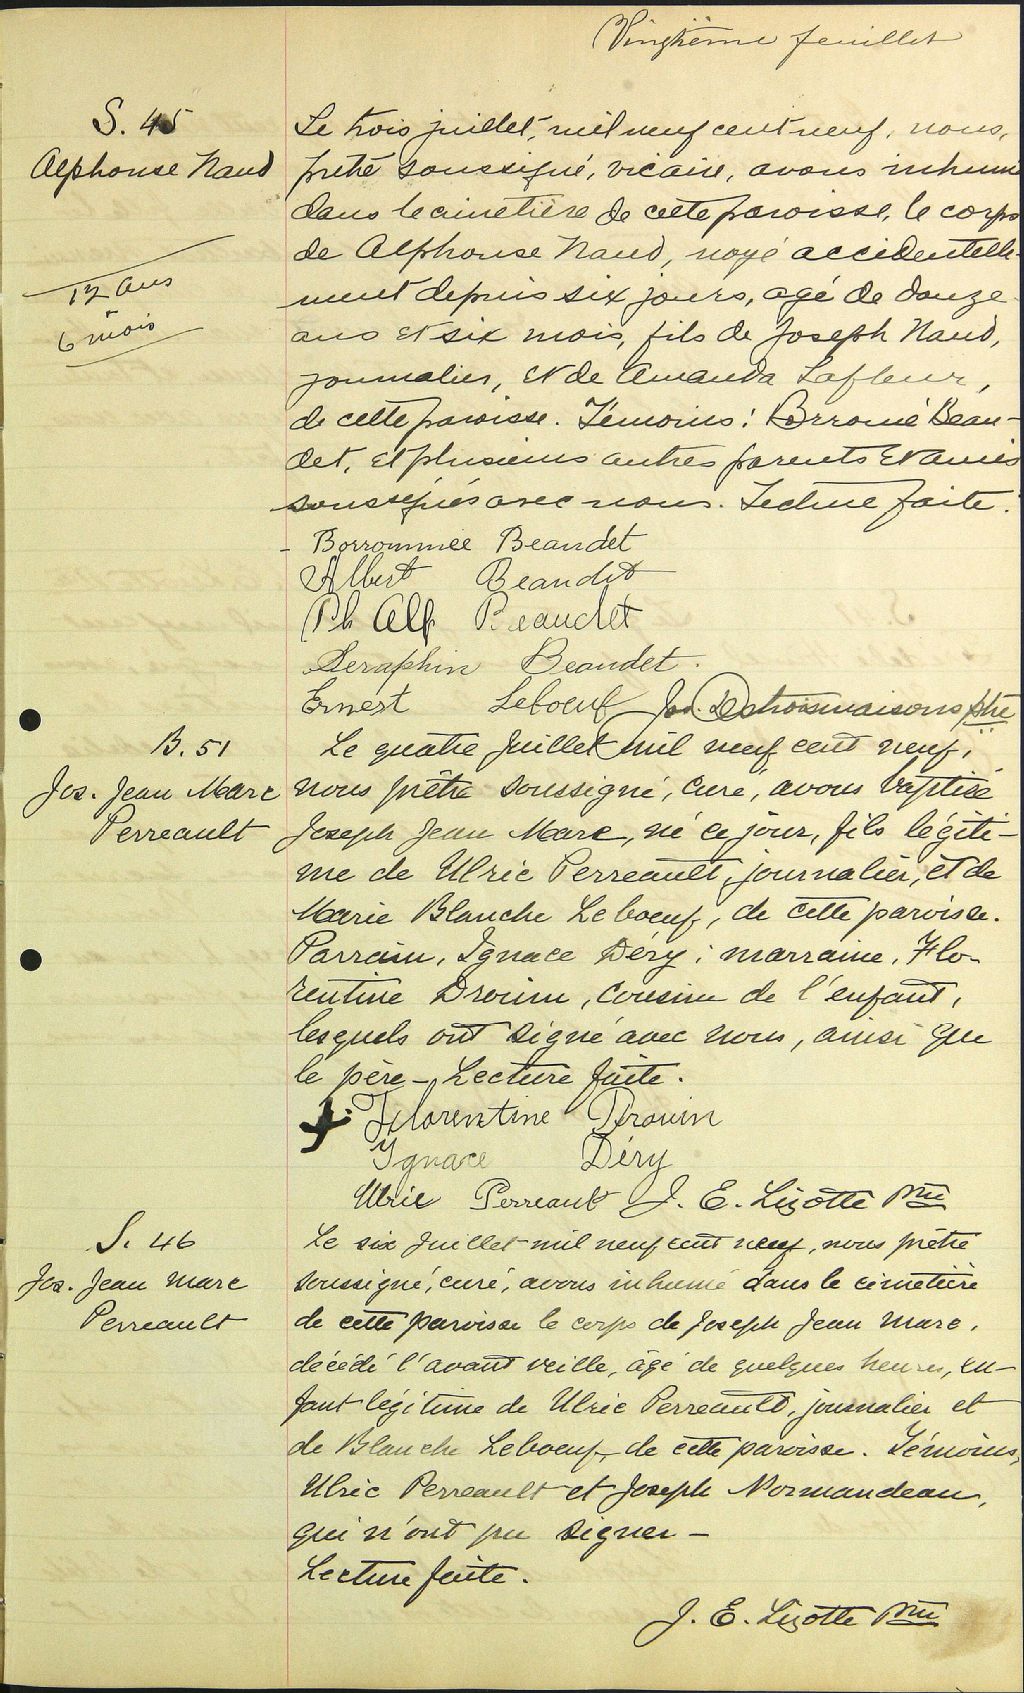 Vingtième feuillet
S. 45
Alphonse Naud
12 ans
6 mois
Le trois juillet, mil neuf cent neuf, nous,
prêtre soussigné, vicaire, avons inhumé
dans le cimetière de cette paroisse, le corps
de Alphonse Naud, noyé accidentelle-
ment depuis six jours, agé de douze
ans et six mois, fils de Joseph Naud,
journalier, et de Amanda Lafleur,
de cette paroisse. Témoins: Borromé Beau-
det, et plusieurs autres parents et amis
soussignés avec nous. Lecture faite.
Borrommée Beaudet
Albert Beaudet
Ph Alf Beaudet
Seraphin Beaudet.
Ernest Leboeuf Jos. Destroismaisons ptre
B. 51
Jos. Jean Marc
Perreault
Le quatre juillet mil neuf cent neuf,
nous prêtre soussigné, curé, avons baptisé
Joseph Jean Marc, né ce jour, fils légiti-
me de Ulric Perreault, journalier, et de
Marie Blanche Leboeuf, de cette paroisse.
Parrain, Ignace Déry; marraine, Flo-
rentine Drouin, cousine de l'enfant,
lesquels ont signé avec nous, ainsi que
le père - Lecture faite.
Florentine Drouin
Ignace Déry
Ulric Perreault J. E. Lizotte Ptre
S. 46
Jos. Jean Marc
Perreault
Le six juillet mil neuf cent neuf, nous prêtre
soussigné, curé, avons inhumé dans le cimetière
de cette paroisse le corps de Joseph Jean Marc,
décédé l'avant veille, âgé de quelques heures, en-
fant légitime de Ulric Perreault, journalier et
de Blanche Leboeuf, de cette paroisse. Témoins,
Ulric Perreault et Joseph Normandeau,
qui n'ont pu signer -
Lecture faite.
J. E. Lizotte Ptre